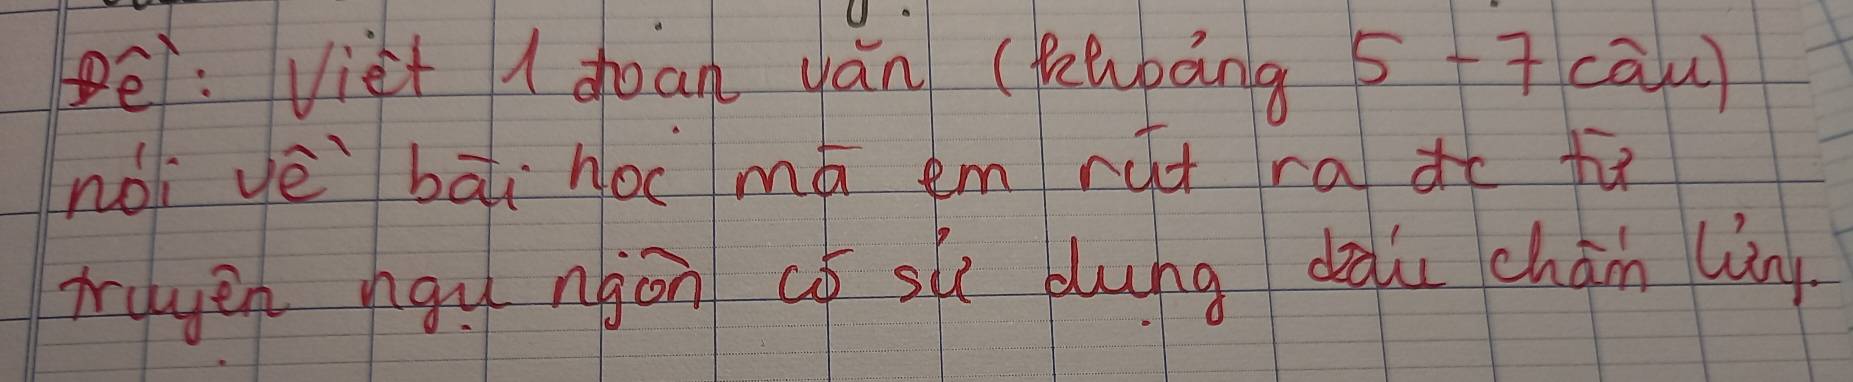 Đề: Viết 1 đoạn văn (khoảng 5 - 7 câu)
nói về bài học mà em rút ra đc từ
truyện ngụ ngôn có sử dụng dấu chấm lửng.